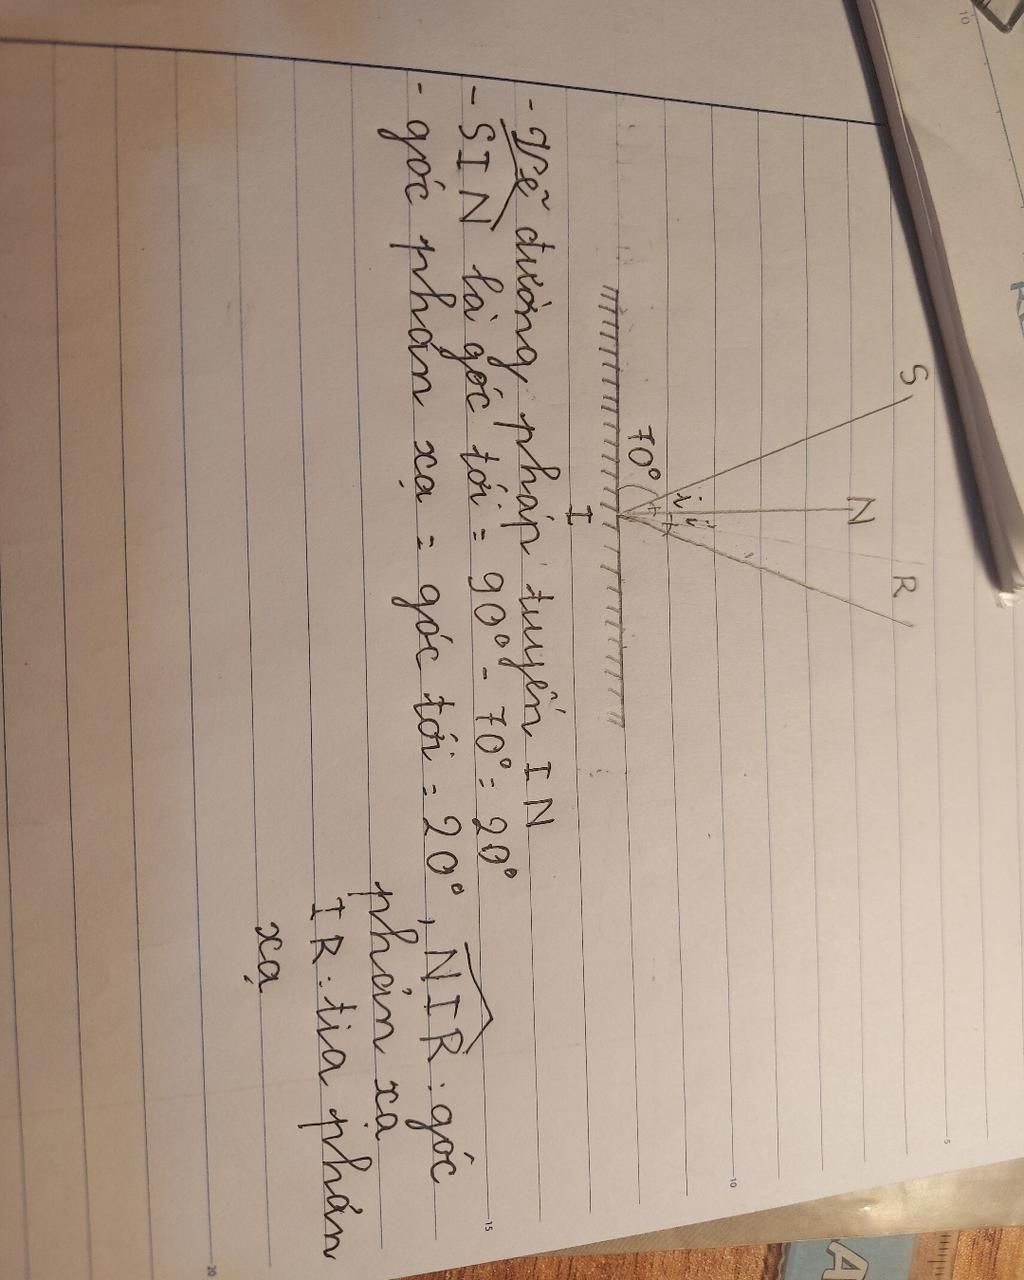 S
N
R
i
i'
70°
I
- Vẽ đường pháp tuyến IN
- SIN là góc tới = 90° - 70° = 20°
- góc phản xạ = góc tới = 20°, NIR : góc
phản xạ
IR : tia phản
xạ
5
10
15
20
10
A